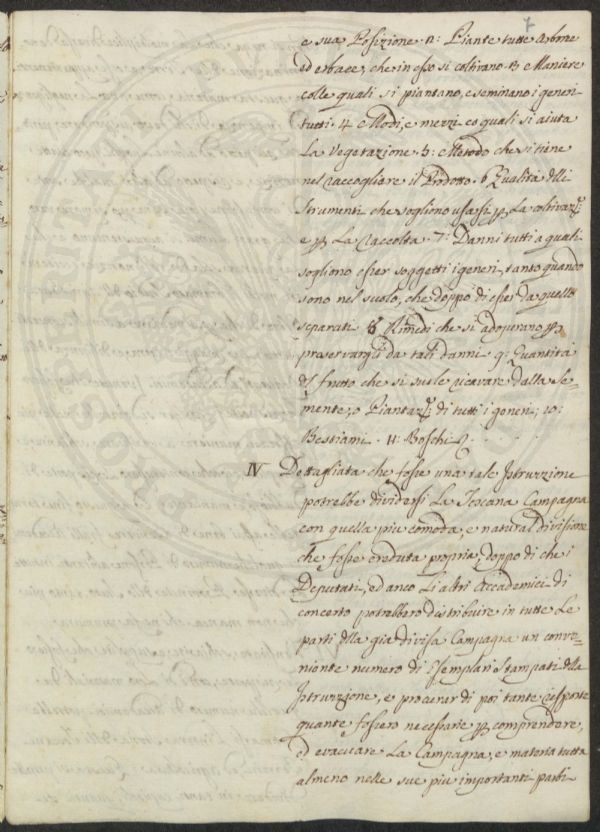 7
e sua Posizione. 2: Piante tutte Arboree
ed erbacee, che in esso si coltivano. 3. Maniere
colle quali si piantano, e seminano i generi
tutti. 4. Modi, e mezzi co quali si aiuta
La Vegetazione. 5: Metodo che si tiene
nel raccogliere il Prodotto. 6 Qualità delli
Strumenti che sogliono usarsi p La coltivaz:
e p La raccolta. 7: Danni tutti a quali
sogliono esser soggetti i generi, tanto quando
sono nel suolo, che doppo di esser da quello
separati. 8 Rimedi che si adoperano p
preservargli da tali danni. 9: Quantità
di frutto che si suole ricavare dalla Se-
mente, o Piantaz: di tutti i generi; 10:
Bestiami. 11: Boschi.
IV Dettagliata che fosse una tale Istruzzione
potrebbe dividersi La Toscana Campagna
con quella più comoda, e natural divisione
che fosse creduta propria; doppo di che i
Deputati, ed anco Li altri Accademici di
concerto potrebbero distribuire in tutte Le
parti della già divisa Campagna un conve-
niente numero di Esemplari Stampati della
Istruzzione, e procurar di poi tante risposte
quante fossero necessarie p comprendere,
ed evacuare La Campagna, e materia tutta
almeno nelle sue più importanti parti